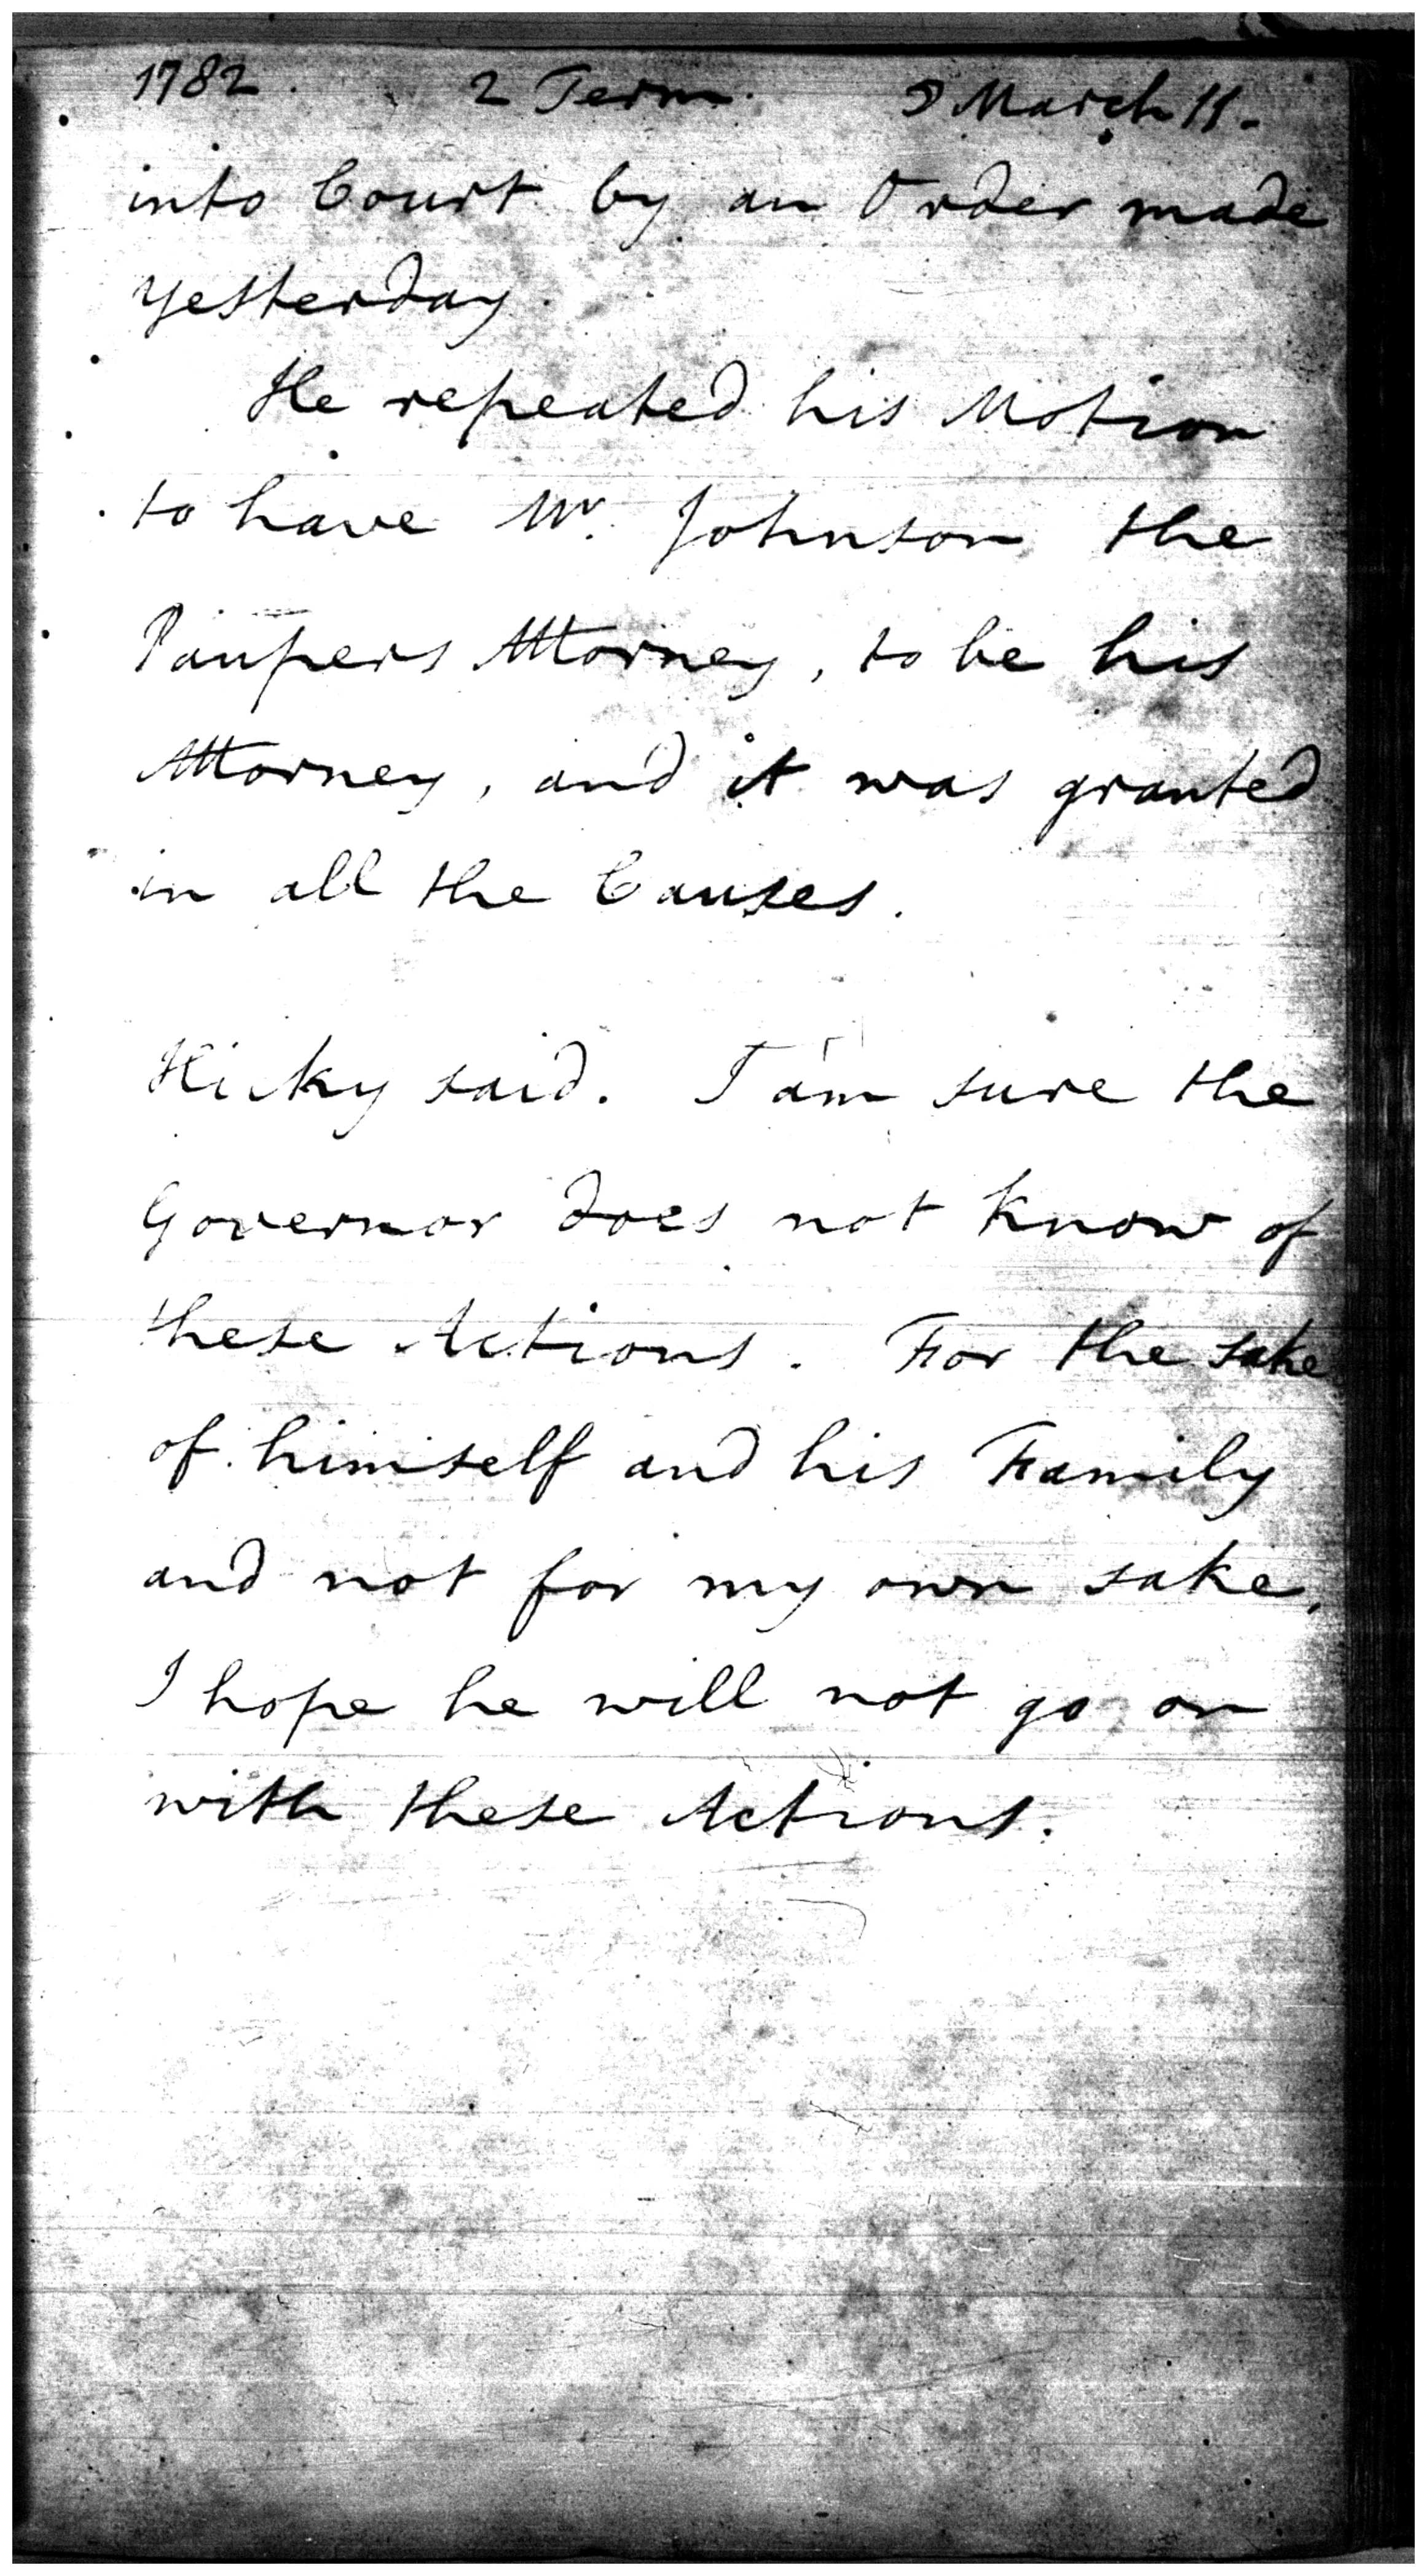 1782. 2 Term. March 11.
into Court by an Order made
yesterday.
He repeated his Motion
to have Mr. Johnson the
Paupers Attorney, to be his
Attorney, and it was granted
in all the Causes.
Hicky said. I am sure the
Governor does not know of
these Actions. For the sake
of himself and his Family
and not for my own sake,
I hope he will not go on
with these Actions.